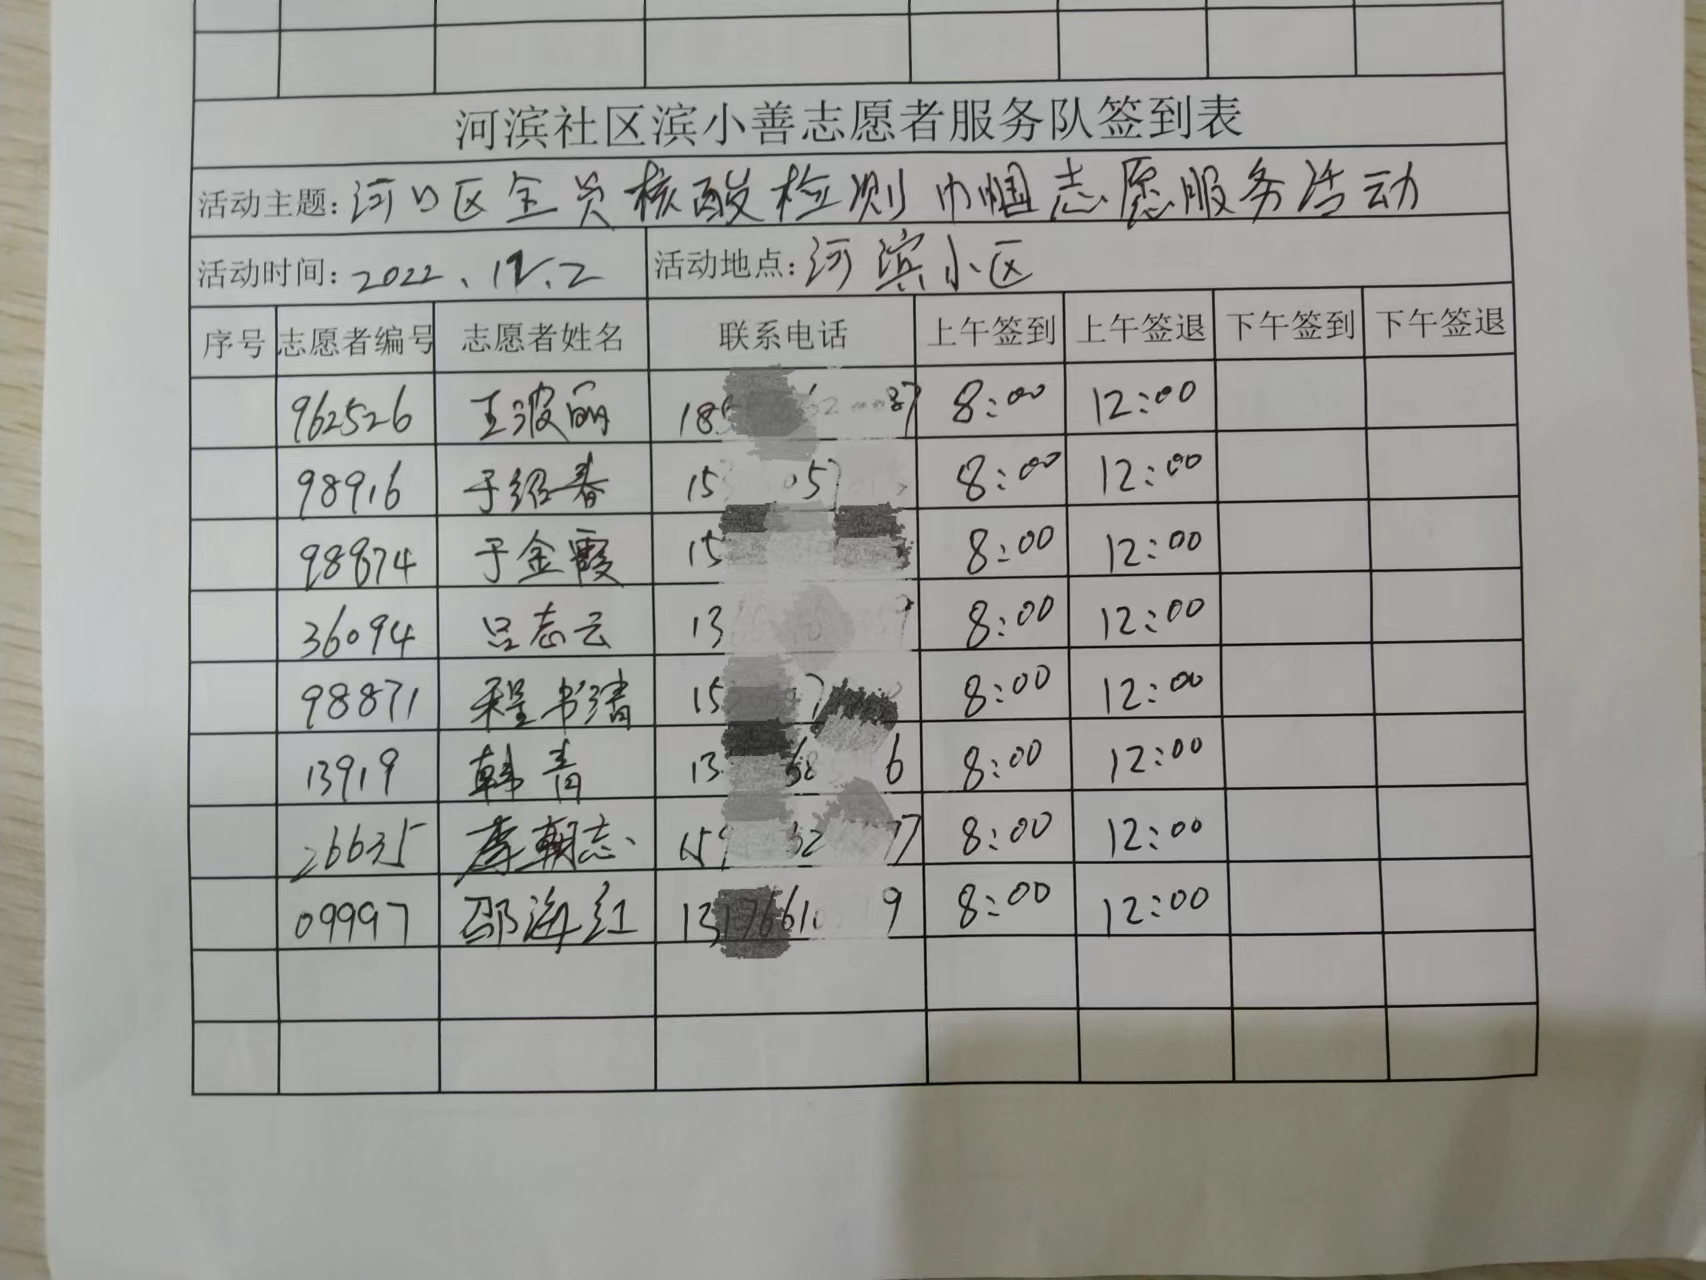 河滨社区滨小善志愿者服务队签到表
活动主题: 河口区全员核酸检测巾帼志愿服务活动
活动时间: 2022.12.2 活动地点: 河滨小区
序号 志愿者编号 志愿者姓名 联系电话 上午签到 上午签退 下午签到 下午签退
962526 王波丽 8:00 12:00
98916 于绍春 8:00 12:00
98874 于金霞 8:00 12:00
36094 吕志云 8:00 12:00
98871 程书清 8:00 12:00
13919 韩青 8:00 12:00
26635 李朝志 8:00 12:00
09997 邵海红 8:00 12:00